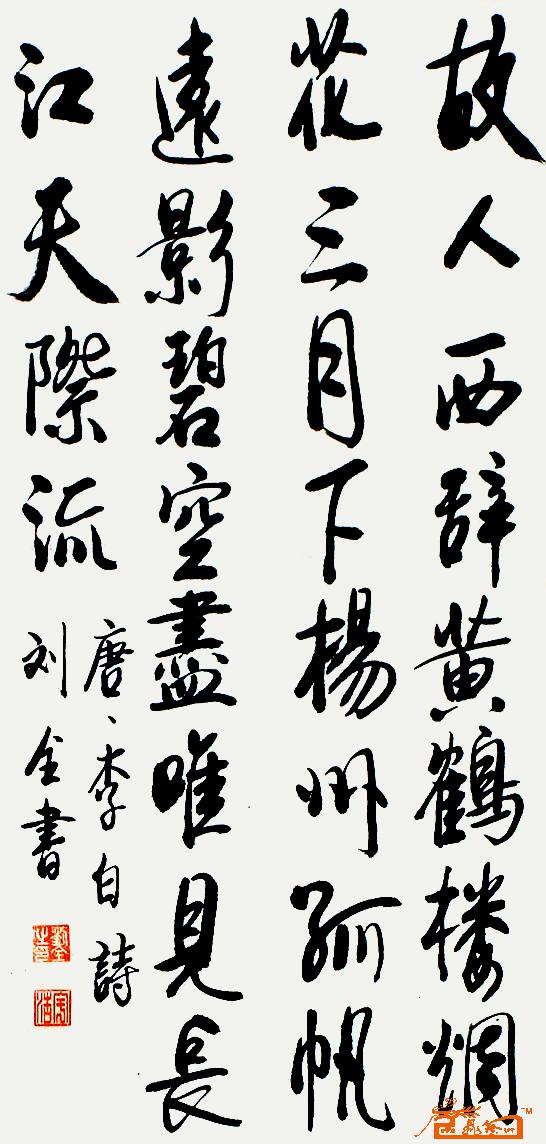 故人西辞黄鹤楼烟
花三月下楊州孤帆
遠影碧空盡唯見長
江天際流
唐、李白詩
刘全書